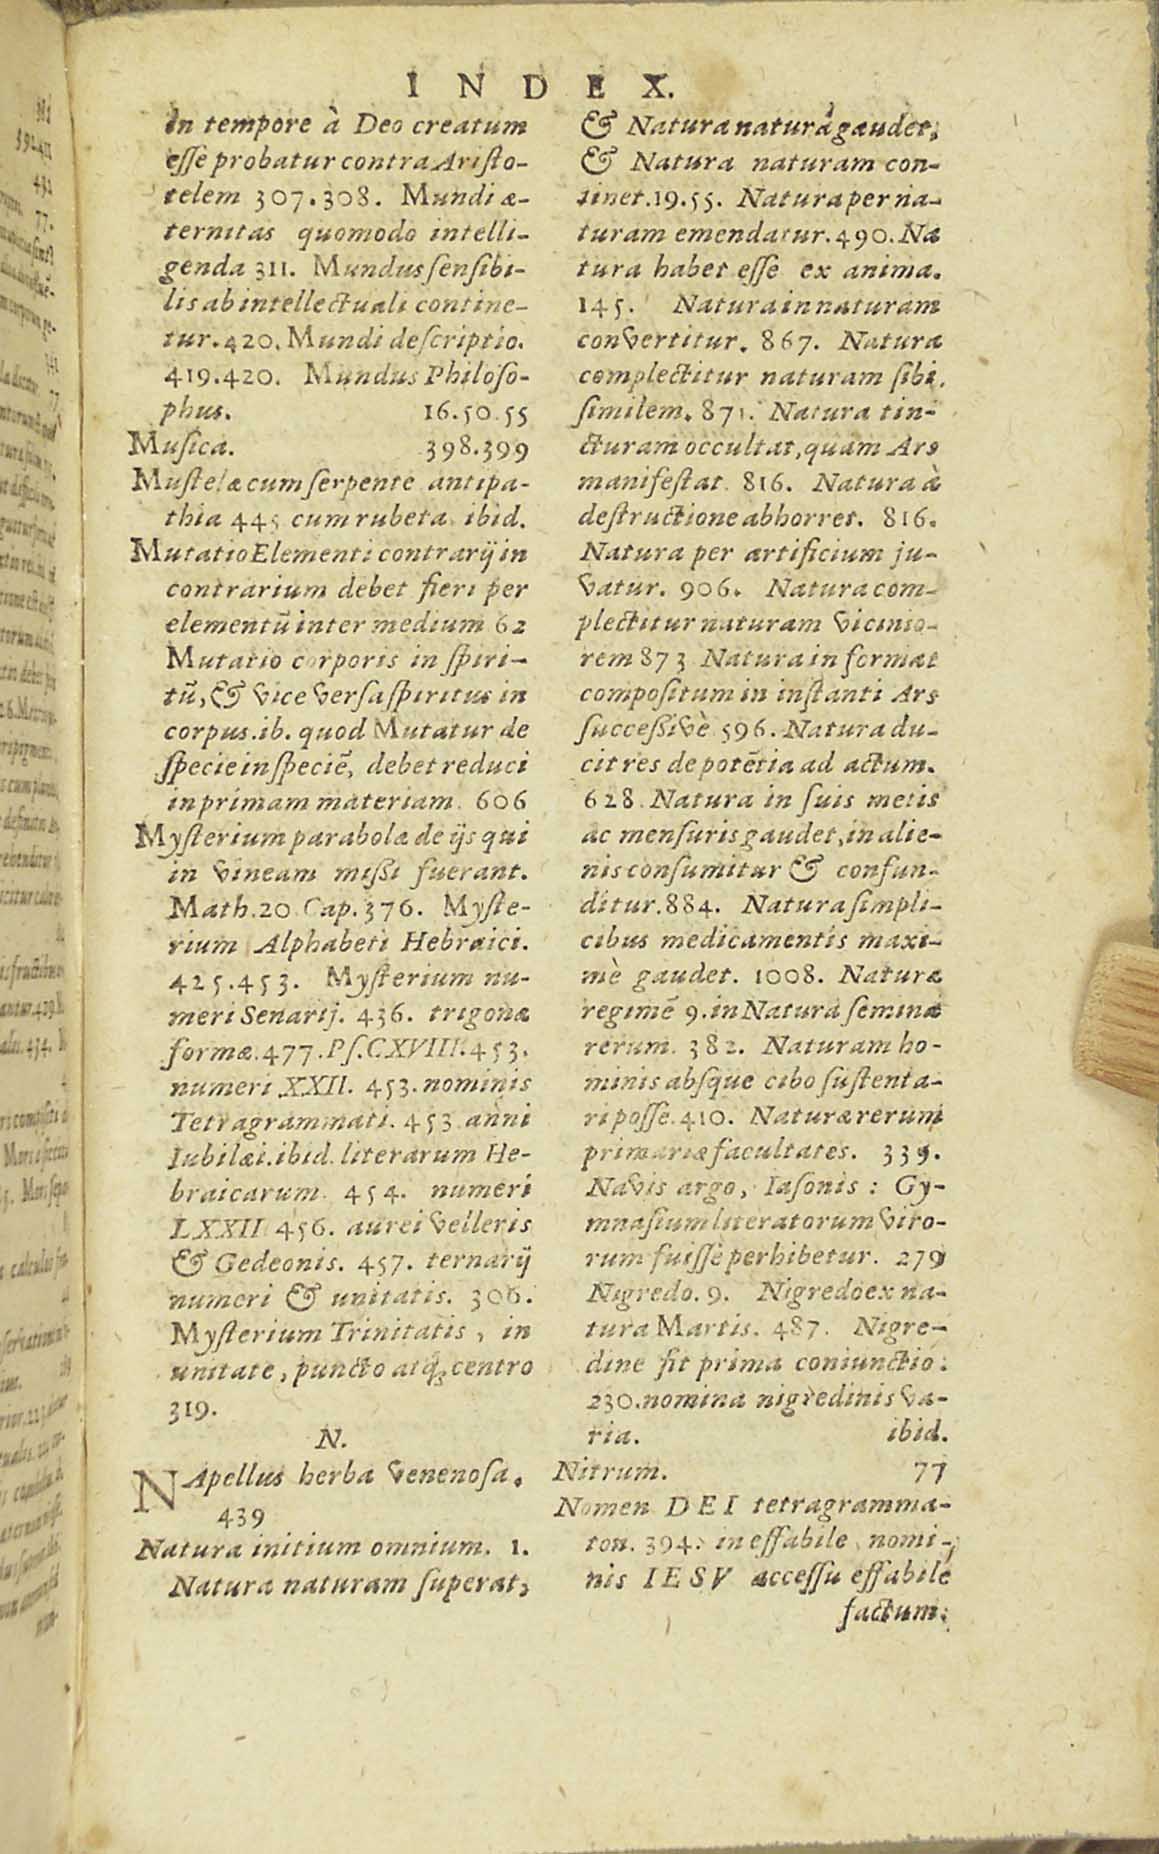 INDEX.
in tempore à Deo creatum
esse probatur contra Aristo-
telem 307.308. Mundi æ-
ternitas quomodo intelli-
genda 311. Mundus sensibi-
lis ab intellectuali contine-
tur. 420. Mundi descriptio.
419.420. Mundus Philoso-
phus. 16.50.55
Musica. 398.399
Mustelæ cum serpente antipa-
thia 445 cum rubeta ibid.
Mutatio Elementi contrarij in
contrarium debet fieri per
elementū inter medium 62
Mutatio corporis in spiri-
tū, & vice versa spiritus in
corpus. ib. quod Mutatur de
specie in speciē, debet reduci
in primam materiam. 606
Mysterium parabolæ de ijs qui
in vineam missi fuerant.
Math. 20 Cap. 376. Myste-
rium Alphabeti Hebraici.
425.453. Mysterium nu-
meri Senarij. 436. trigonæ
formæ. 477. Ps. CXVIII. 453.
numeri XXII. 453. nominis
Tetragrammati. 453 anni
Iubilæi. ibid. literarum He-
braicarum. 454. numeri
LXXII 456. aurei velleris
& Gedeonis. 457. ternarij
numeri & unitatis. 306.
Mysterium Trinitatis, in
unitate, puncto atq; centro
319.
N.
NApellus herba venenosa.
439
Natura initium omnium. 1.
Natura naturam superat,
& Natura naturâ gaudet;
& Natura naturam con-
tinet. 19.55. Natura per na-
turam emendatur. 490. Na
tura habet esse ex anima.
145. Natura in naturam
convertitur. 867. Natura
complectitur naturam sibi
similem. 871. Natura tin-
cturam occultat, quam Ars
manifestat 816. Natura à
destructione abhorret. 816.
Natura per artificium ju-
vatur. 906. Natura com-
plectitur naturam vicinio-
rem 873 Natura informat
compositum in instanti Ars
successivè 596. Natura du-
cit res de potētia ad actum.
628. Natura in suis metis
ac mensuris gaudet, in alie-
nis consumitur & confun-
ditur. 884. Natura simpli-
cibus medicamentis maxi-
mè gaudet. 1008. Naturæ
regimē 9. in Natura semina
rerum. 382. Naturam ho-
minis absque cibo sustenta-
ri posse. 410. Naturæ rerum
primariæ facultates. 339.
Navis argo, Iasonis: Gy-
mnasium literatorum viro-
rum fuisse perhibetur. 279
Nigredo. 9. Nigredo ex na-
tura Martis. 487. Nigre-
dine fit prima coniunctio:
230. nomina nigredinis va-
ria. ibid.
Nitrum. 77
Nomen DEI tetragramma-
ton. 394. ineffabile nomi-
nis IESV accessu effabile
factum.